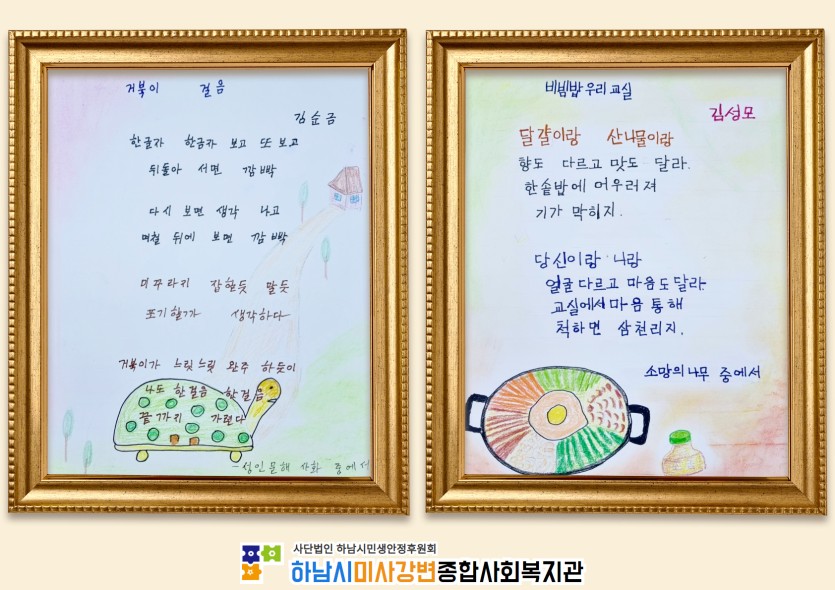 거북이 걸음
김순금
한글자 한글자 보고 또 보고
뒤돌아 서면 깜빡
다시 보면 생각 나고
며칠 뒤에 보면 깜빡
미꾸라지 잡힐듯 말듯
포기할까 생각하다
거북이가 느릿느릿 완주 하듯이
나도 한걸음 한걸음
끝까지 가련다
-성인문해 시화 중에서
비빔밥 우리 교실
김성모
달걀이랑 산나물이랑
향도 다르고 맛도 달라.
한솥밥에 어우러져
기가 막히지.
당신이랑 나랑
얼굴 다르고 마음도 달라
교실에서 마음 통해
척하면 삼천리지.
소망의 나무 중에서
사단법인 하남시민생안정후원회
하남시미사강변종합사회복지관